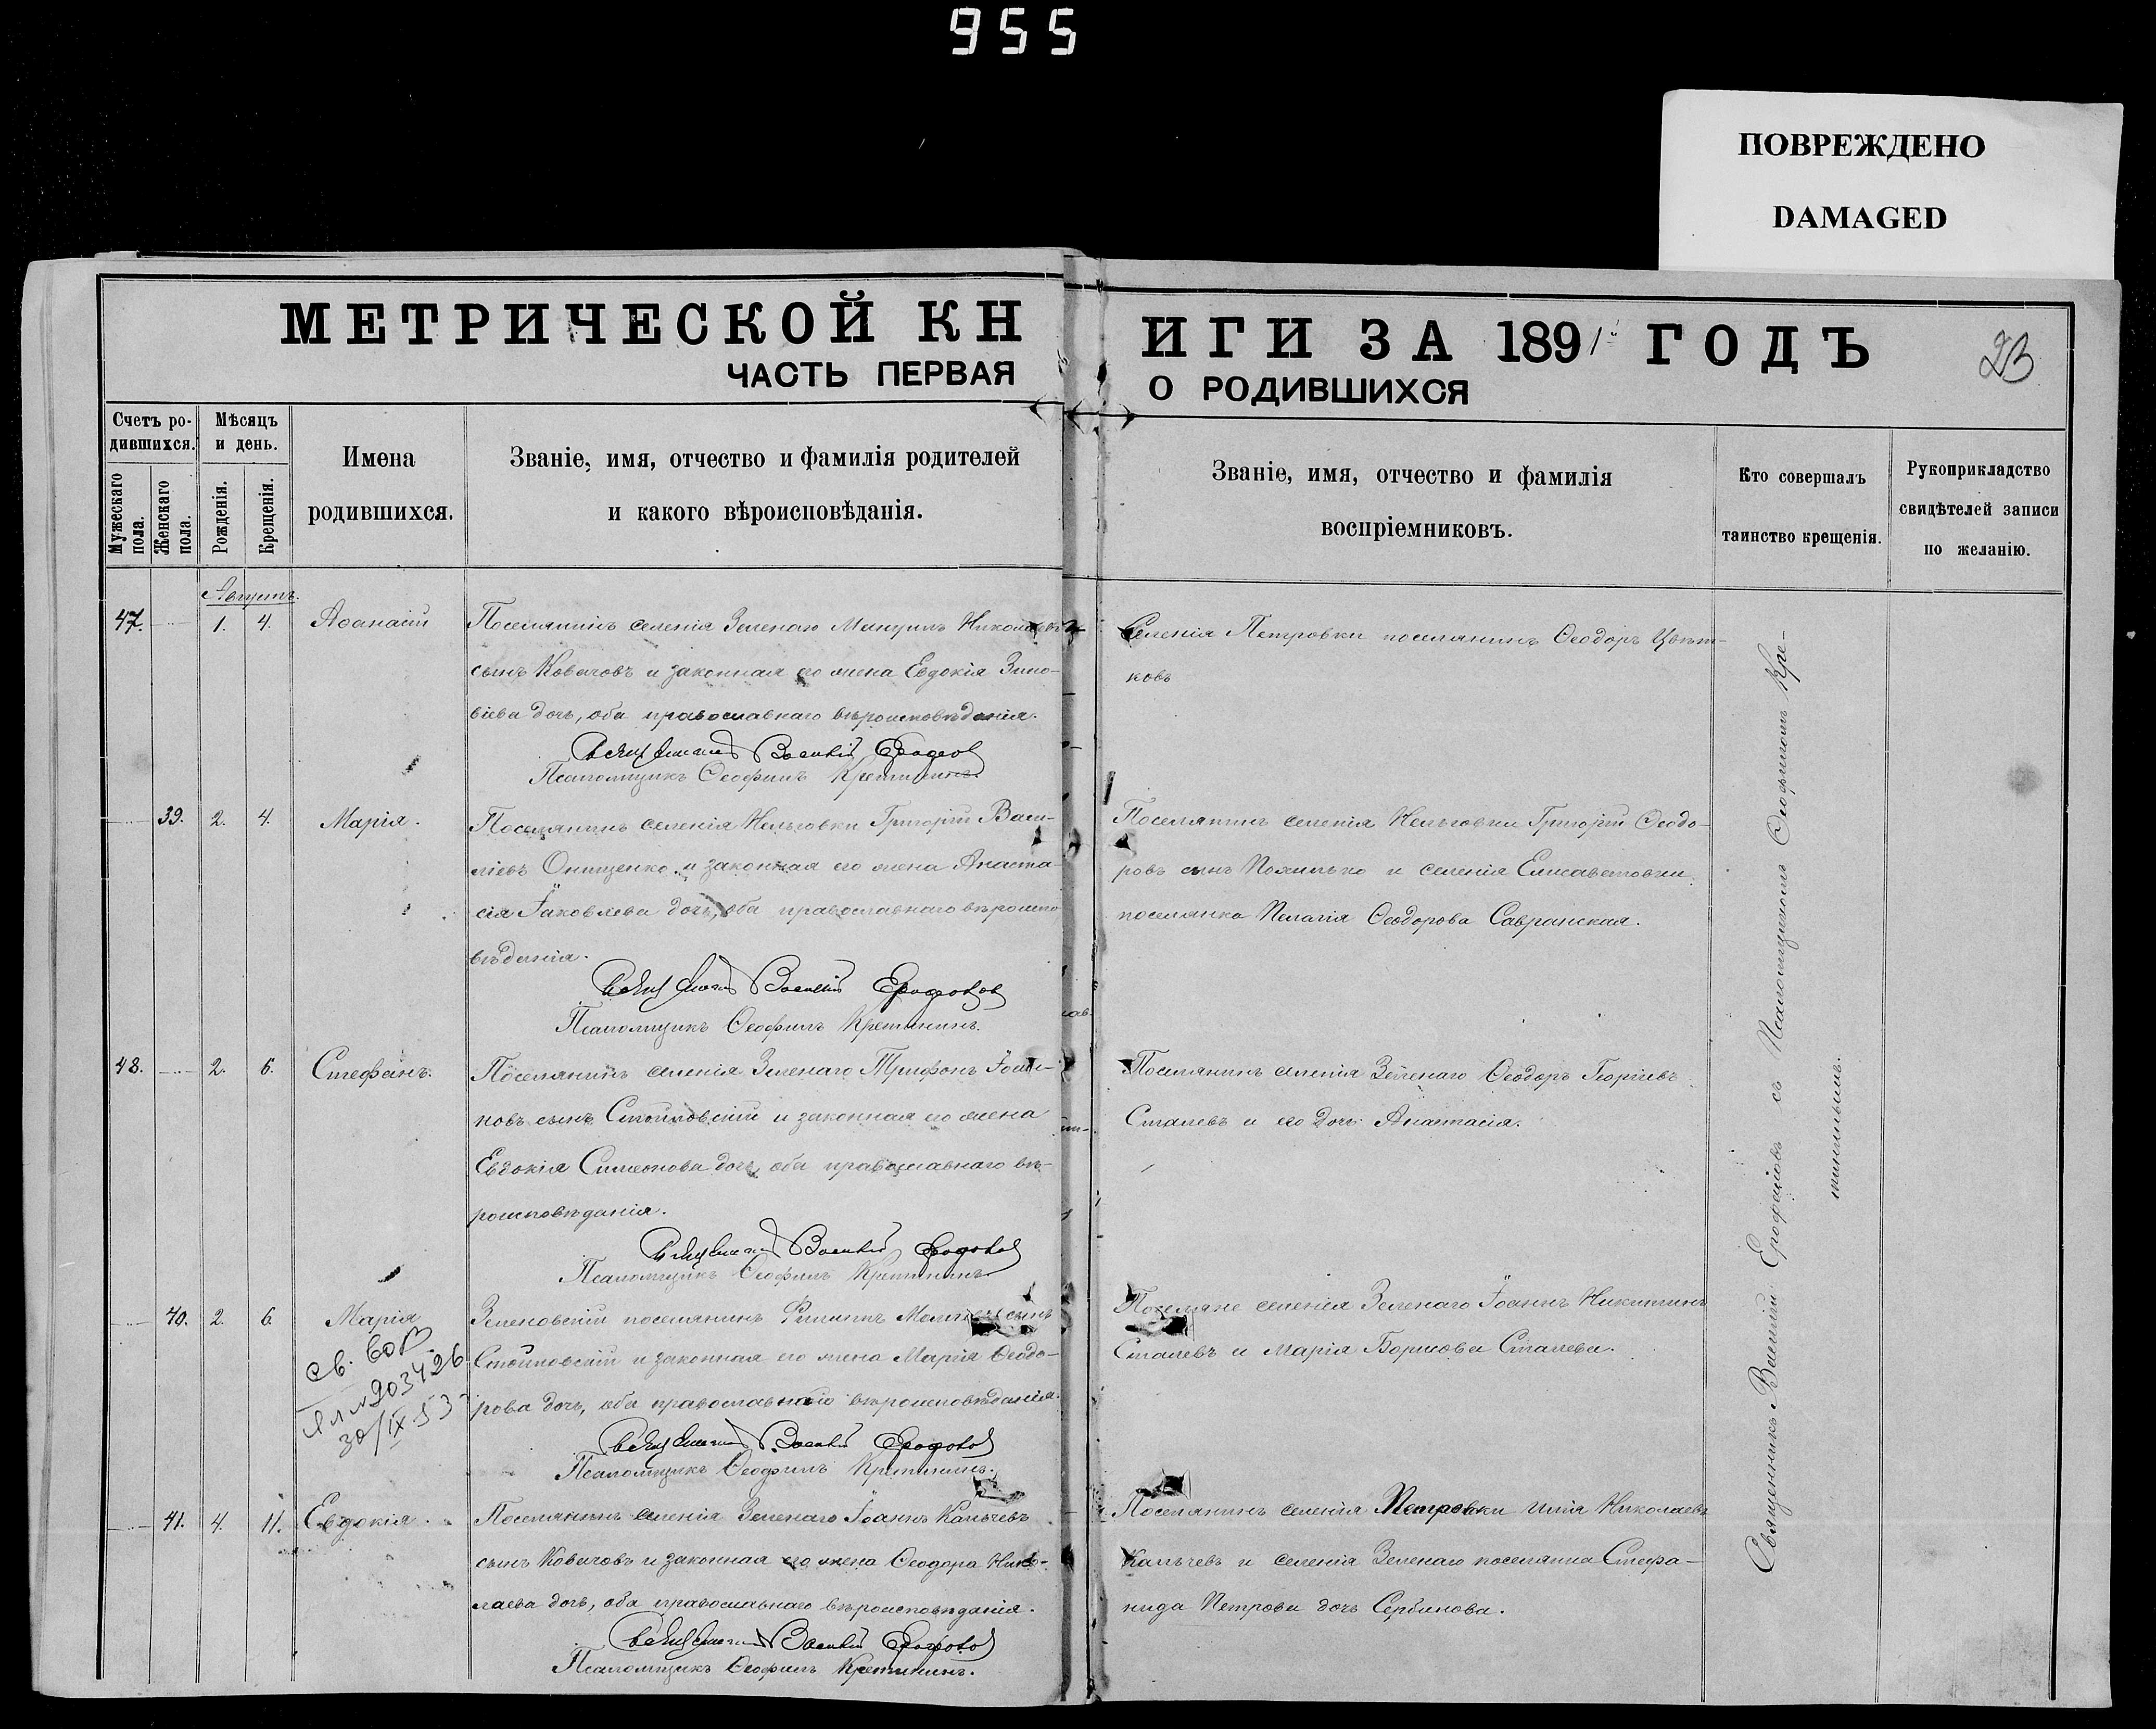 955
ПОВРЕЖДЕНО
DAMAGED
МЕТРИЧЕСКОЙ КНИГИ ЗА 1891й ГОДЪ
23
ЧАСТЬ ПЕРВАЯ О РОДИВШИХСЯ
Счетъ родившихся.
Мужескаго пола.
Женскаго пола.
Мѣсяцъ и день.
Рожденія.
Крещенія.
Имена родившихся.
Званіе, имя, отчество и фамилія родителей
и какого вѣроисповѣданія.
Званіе, имя, отчество и фамилія
воспріемниковъ.
Кто совершалъ
таинство крещенія.
Рукоприкладство
свидѣтелей записи
по желанію.
Августъ.
47. 1. 4. Аѳанасій
Поселянинъ селенія Зеленаго Николаевъ
сынъ Ковачовъ и законная его жена Евдокія Зино-
віева дочь, оба православнаго вѣроисповѣданія.
Священникъ Василій
Псаломщикъ Ѳеофилъ Кретининъ.
Селенія Петровки поселянинъ Ѳеодоръ Цвѣт-
ковъ
39. 2. 4. Марія.
Поселянинъ селенія Нельговки Григорій Васи-
ліевъ Онищенко и законная его жена Анаста-
сія Іаковлева дочь, оба православнаго вѣроиспо-
вѣданія.
Священникъ Василій
Псаломщикъ Ѳеофилъ Кретининъ.
Поселянинъ селенія Нельговки Григорій Ѳеодо-
ровъ сынъ Похилько и селенія Елисаветовки
поселянка Пелагія Ѳеодорова Савранская.
48. 2. 6. Стефанъ.
Поселянинъ селенія Зеленаго Трифонъ Іоан-
новъ сынъ Стоиловскій и законная его жена
Евдокія Симеонова дочь, оба православнаго вѣ-
роисповѣданія.
Священникъ Василій
Псаломщикъ Ѳеофилъ Кретининъ.
Поселянинъ селенія Зеленаго Ѳеодоръ Георгіевъ
Сталевъ и его дочь Анастасія.
40. 2. 6. Марія
св.
203426
30/IX-53
Зеленовскій поселянинъ Филиппъ сынъ
Стоиловскій и законная его жена Марія Ѳеодо-
рова дочь, оба православнаго вѣроисповѣданія.
Священникъ Василій
Псаломщикъ Ѳеофилъ Кретининъ.
Поселяне селенія Зеленаго Іоаннъ Никитинъ
Сталевъ и Марія Борисова Сталева.
41. 4. 11. Евдокія.
Поселянинъ селенія Зеленаго Іоаннъ Калчевъ
сынъ Ковачовъ и законная его жена Ѳеодора Нико-
лаева дочь, оба православнаго вѣроисповѣданія.
Священникъ Василій
Псаломщикъ Ѳеофилъ Кретининъ.
Поселянинъ селенія Петровки Илія Николаевъ
Калъчевъ и селенія Зеленаго поселянка Стефа-
нида Петрова дочь Сербинова.
Священникъ Василій съ Псаломщикомъ Ѳеофиломъ Кре-
тининымъ.